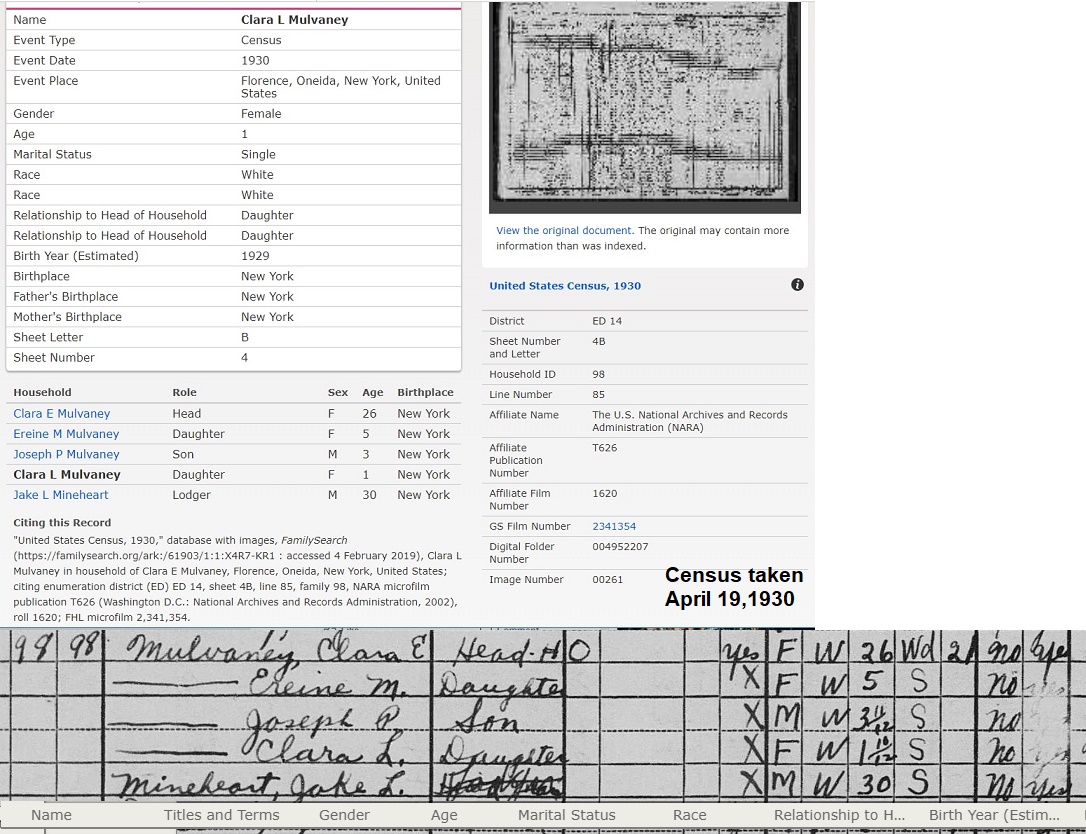 Name Clara L Mulvaney
Event Type Census
Event Date 1930
Event Place Florence, Oneida, New York, United
States
Gender Female
Age 1
Marital Status Single
Race White
Race White
Relationship to Head of Household Daughter
Relationship to Head of Household Daughter
Birth Year (Estimated) 1929
Birthplace New York
Father's Birthplace New York
Mother's Birthplace New York
Sheet Letter B
Sheet Number 4
Household Role Sex Age Birthplace
Clara E Mulvaney Head F 26 New York
Ereine M Mulvaney Daughter F 5 New York
Joseph P Mulvaney Son M 3 New York
Clara L Mulvaney Daughter F 1 New York
Jake L Mineheart Lodger M 30 New York
Citing this Record
"United States Census, 1930," database with images, FamilySearch
(https://familysearch.org/ark:/61903/1:1:X4R7-KR1 : accessed 4 February 2019), Clara L
Mulvaney in household of Clara E Mulvaney, Florence, Oneida, New York, United States;
citing enumeration district (ED) ED 14, sheet 4B, line 85, family 98, NARA microfilm
publication T626 (Washington D.C.: National Archives and Records Administration, 2002),
roll 1620; FHL microfilm 2,341,354.
View the original document. The original may contain more
information than was indexed.
United States Census, 1930
District ED 14
Sheet Number 4B
and Letter
Household ID 98
Line Number 85
Affiliate Name The U.S. National Archives and Records
Administration (NARA)
Affiliate T626
Publication
Number
Affiliate Film 1620
Number
GS Film Number 2341354
Digital Folder 004952207
Number
Image Number 00261
Census taken
April 19,1930
98 98 Mulvaney, Clara E Head-H O yes F W 26 Wd 21 no yes
Ereine M. Daughter X F W 5 S no yes
Joseph P Son X M W 3 11/12 S no
Clara L. Daughter X F W 1 10/12 S no
Mineheart, Jake L. X M W 30 S no yes
Name Titles and Terms Gender Age Marital Status Race Relationship to H... Birth Year (Estim...